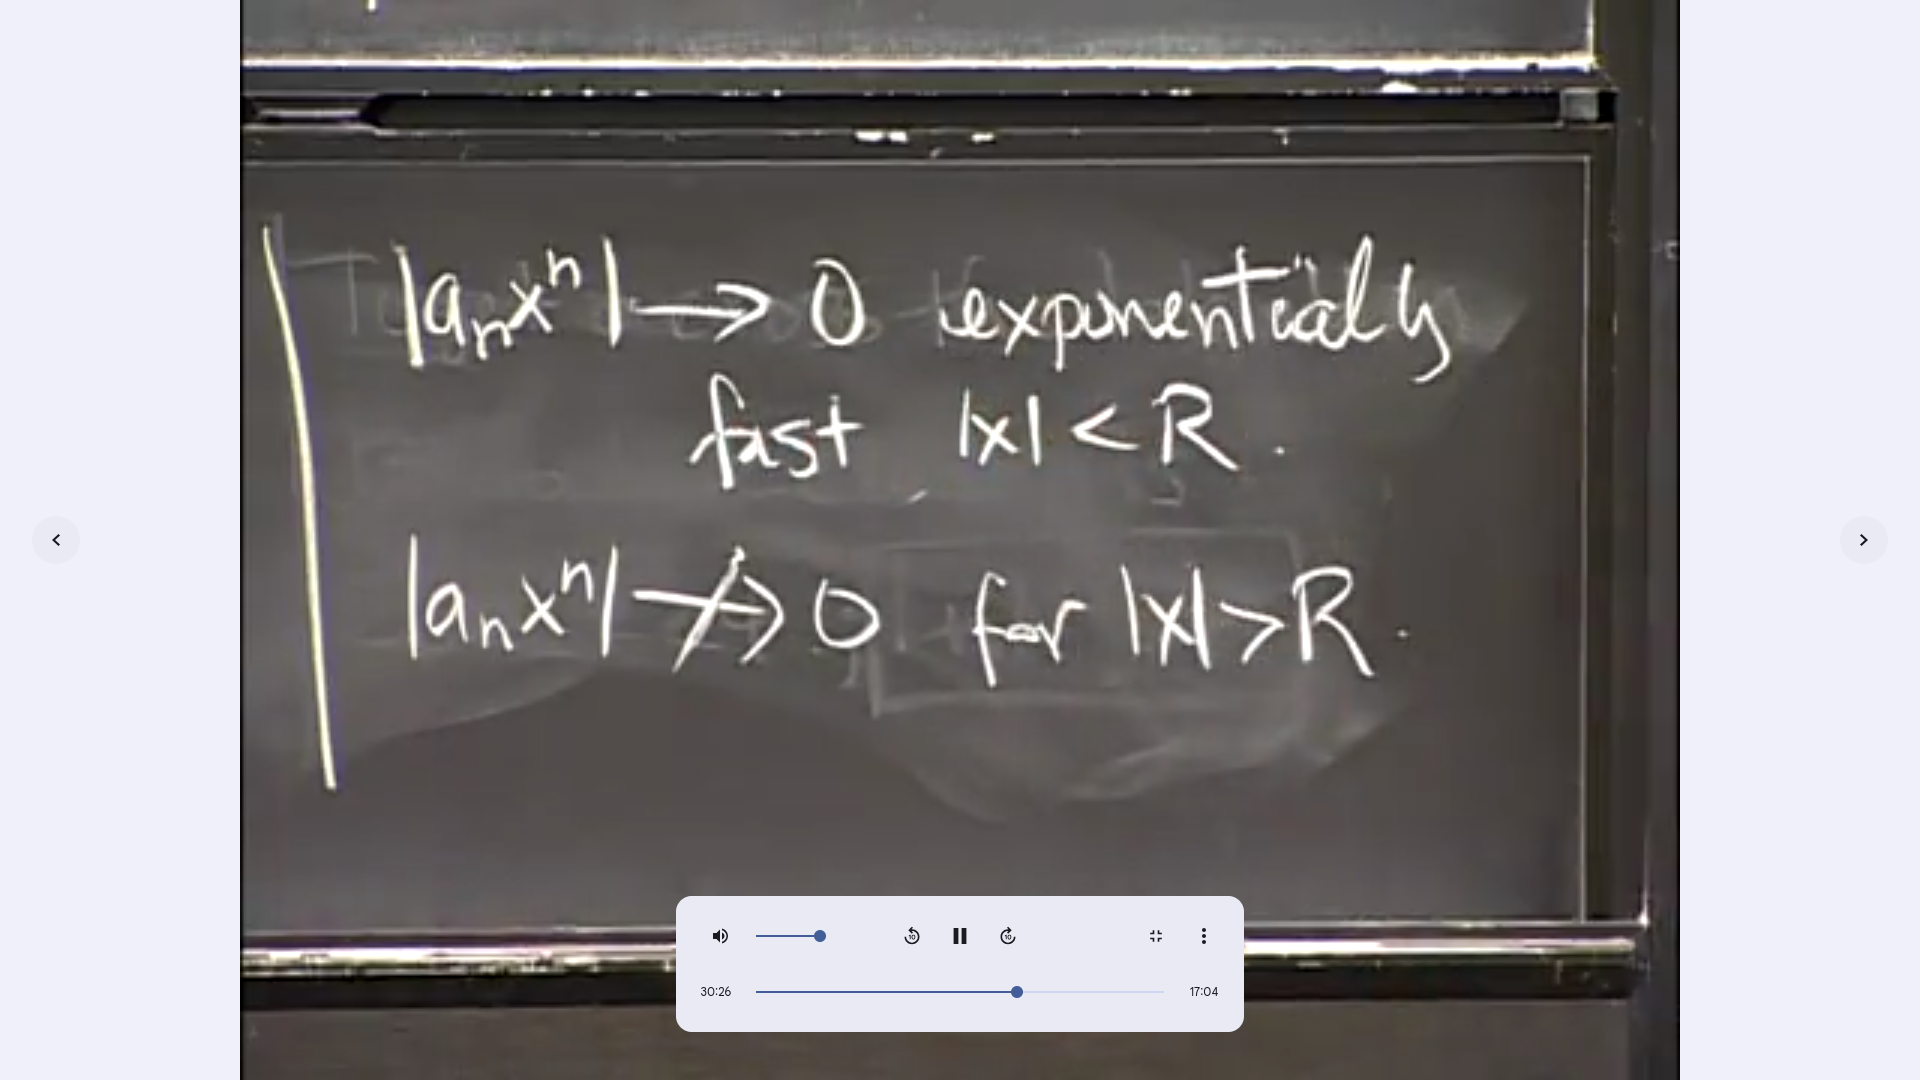 |aₙxⁿ| → 0 exponentially
fast |x| < R.
|aₙxⁿ| ↛ 0 for |x| > R.
10
10
30:26
17:04